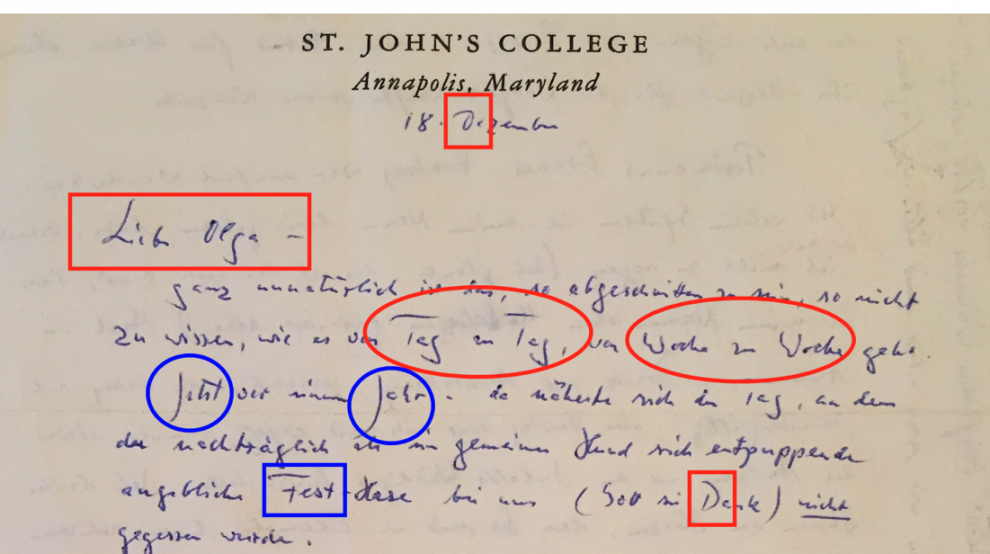 ST. JOHN'S COLLEGE
Annapolis, Maryland
18. Dezember
Liebe Olga –
ganz unnatürlich ist das, so abgeschnitten zu sein, so nicht
zu wissen, wie es von Tag zu Tag, von Woche zu Woche geht.
Jetzt vor einem Jahr – da näherte sich der Tag, an dem
der nachträglich als ein gemeiner Hund sich entpuppende
angebliche Fest-Hase bei uns (Gott sei Dank) nicht
gegessen wurde.